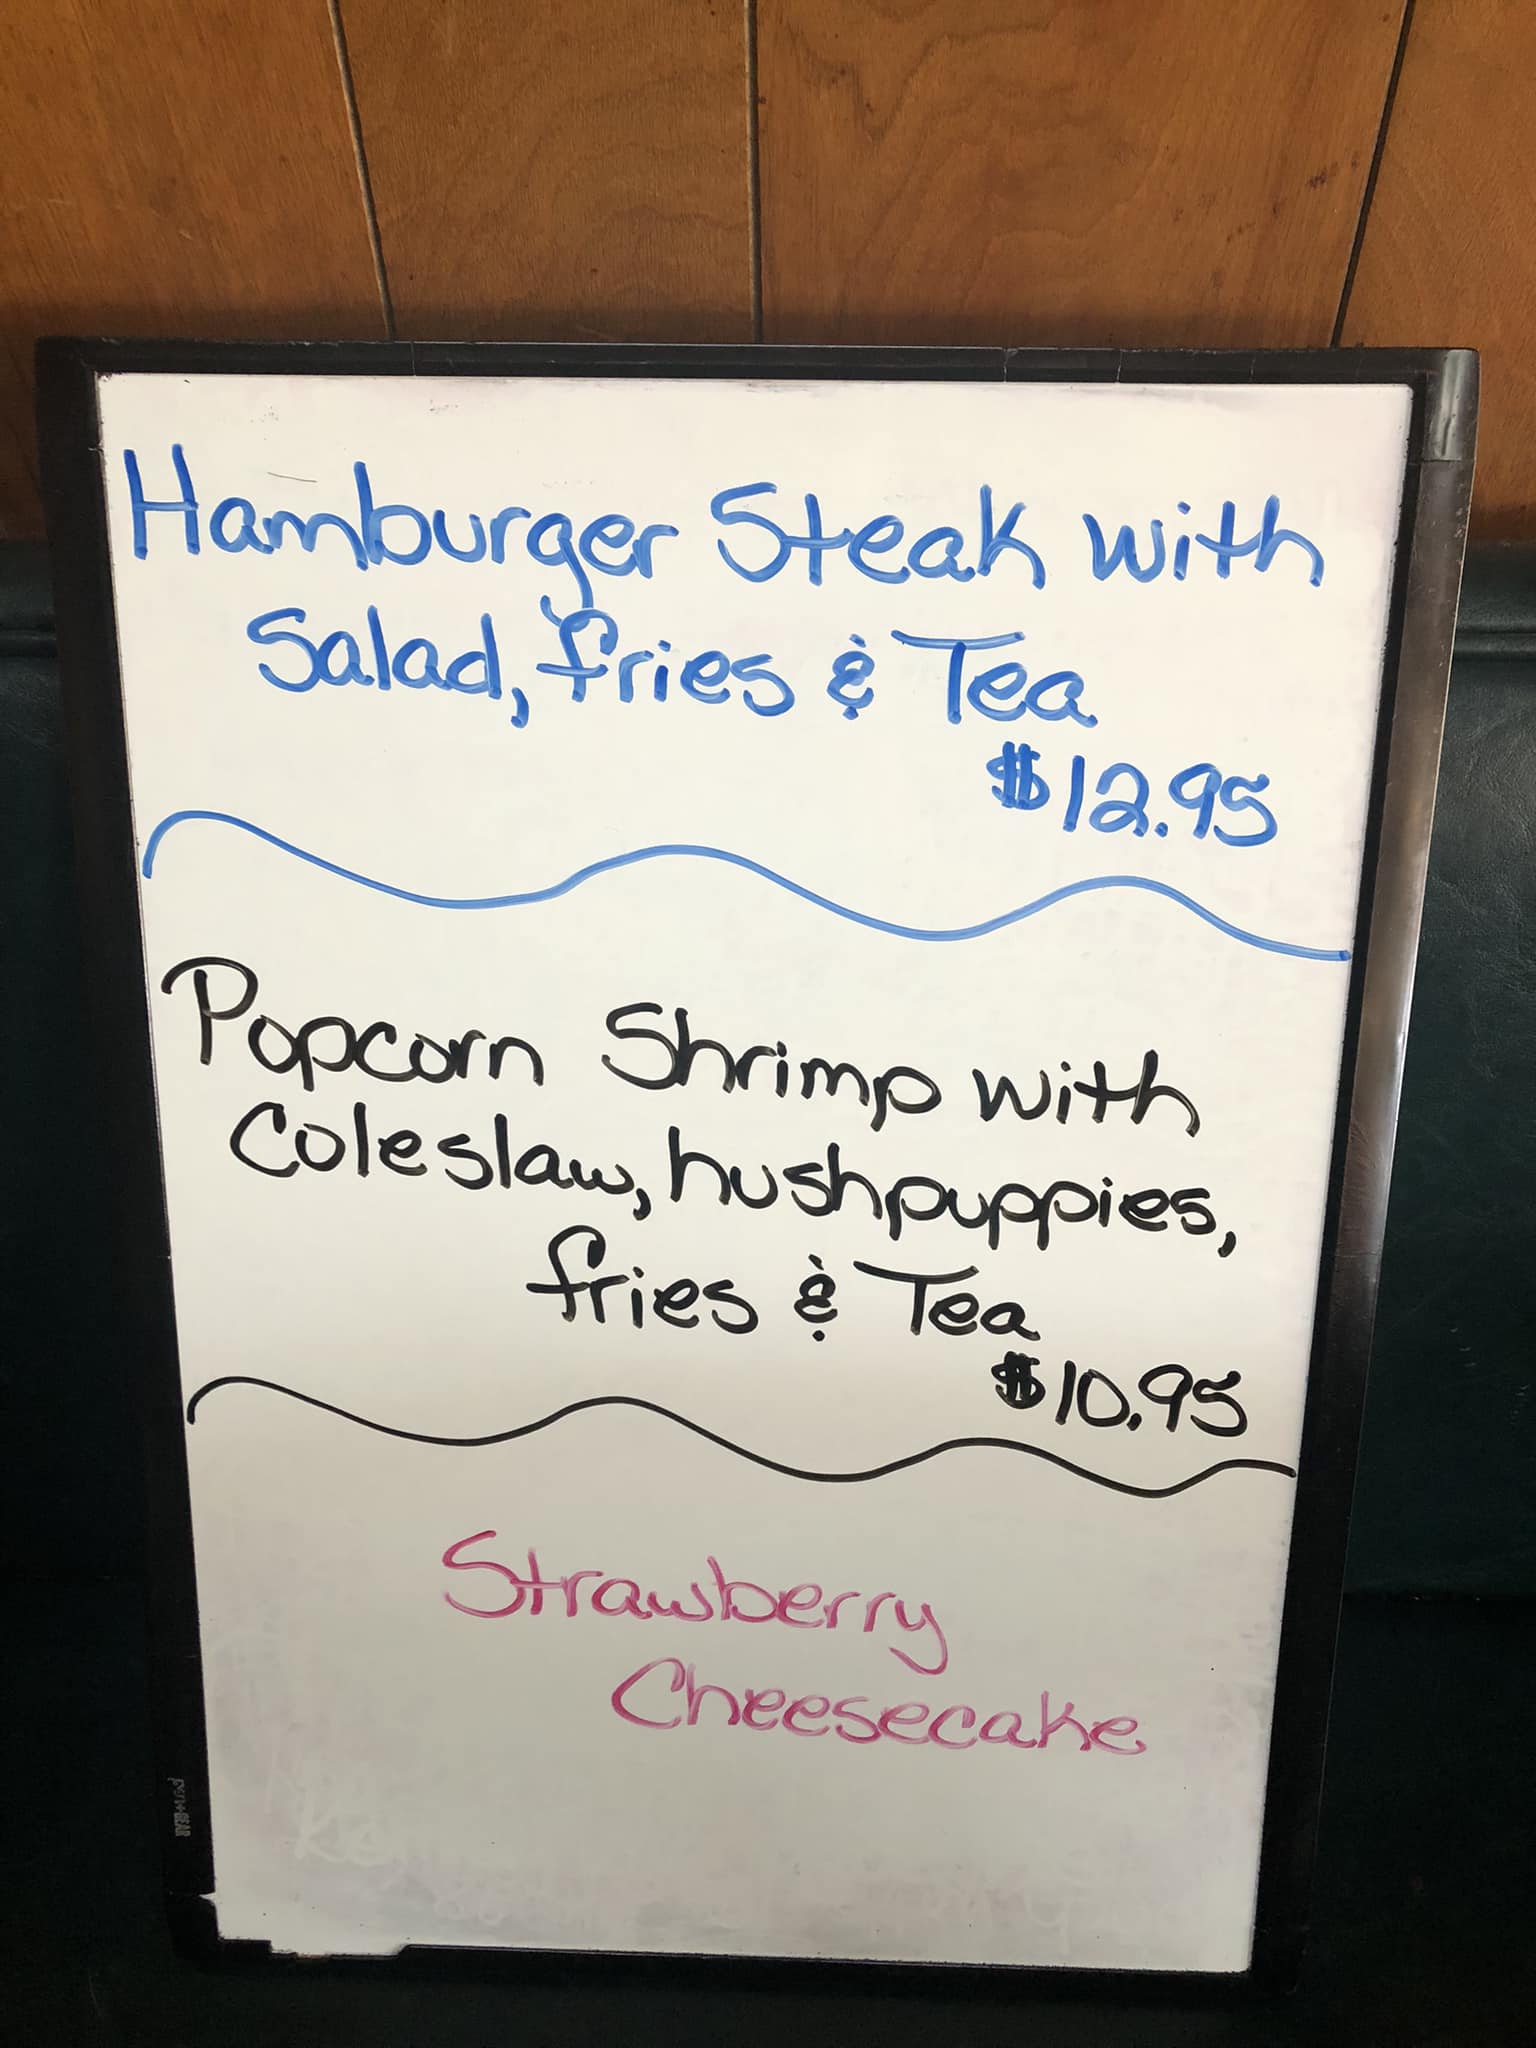 Hamburger Steak with
Salad, fries & Tea
$12.95
Popcorn Shrimp with
Coleslaw, hushpuppies,
fries & Tea
$10.95
Strawberry
Cheesecake